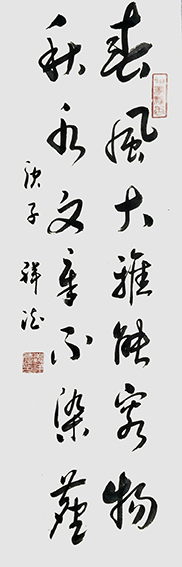 春風大雅能容物
秋水文章不染塵
庚子 祥峰